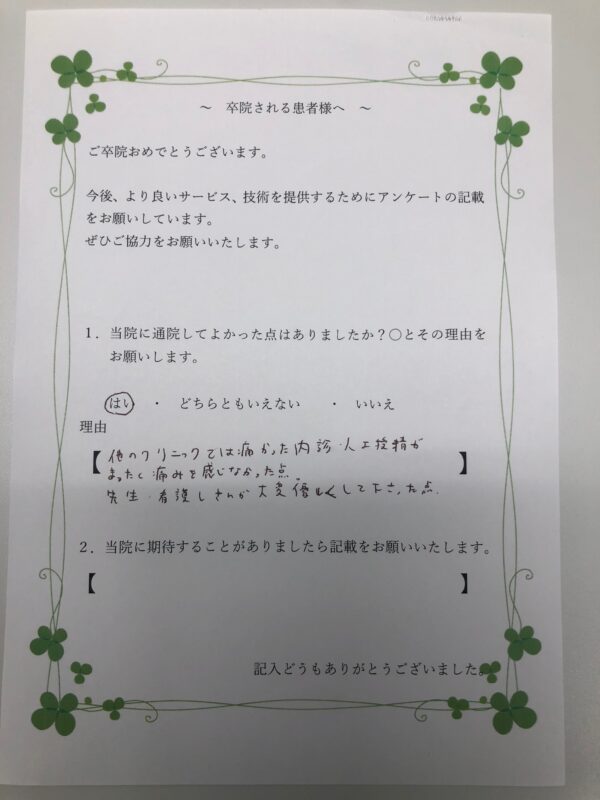 ～　卒院される患者様へ　～
ご卒院おめでとうございます。
今後、より良いサービス、技術を提供するためにアンケートの記載
をお願いしています。
ぜひご協力をお願いいたします。
１．当院に通院してよかった点はありましたか？〇とその理由を
お願いします。
はい　・　どちらともいえない　・　いいえ
理由
【他のクリニックでは痛かった内診・人工授精が
まったく痛みを感じなかった点。
先生・看護しさんが大変優しくして下さった点.】
２．当院に期待することがありましたら記載をお願いいたします。
【　】
記入どうもありがとうございました。